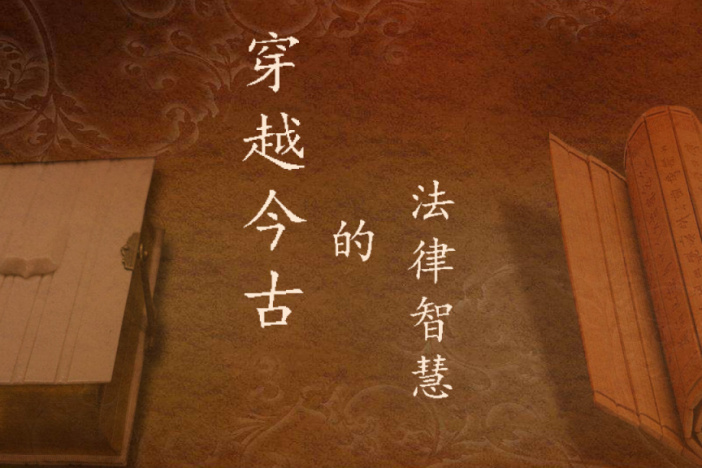 穿越今古
的
法律智慧